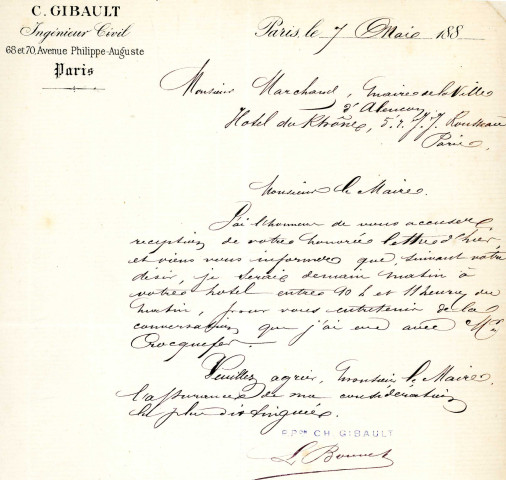 C. GIBAULT
Ingénieur Civil
68 et 70, Avenue Philippe-Auguste
Paris
Paris, le 7 Mai 188
Monsieur Marchand, maire de la Ville
d'Alençon
Hotel du Rhône, 5. r. J. J. Rousseau
Paris.
Monsieur le Maire.
J'ai l'honneur de vous accuser
reception de votre honorée lettre d'hier
et viens vous informer que, suivant votre
désir, je serai demain matin à
votre hotel entre 10 h et 11 heures du
matin, pour vous entretenir de la
conversation que j'ai eue avec Mr
Crocquefer.
Veuillez agréer, Monsieur le Maire,
l'assurance de ma considération
la plus distinguée.
P.Pon CH. GIBAULT
L. Bonnet